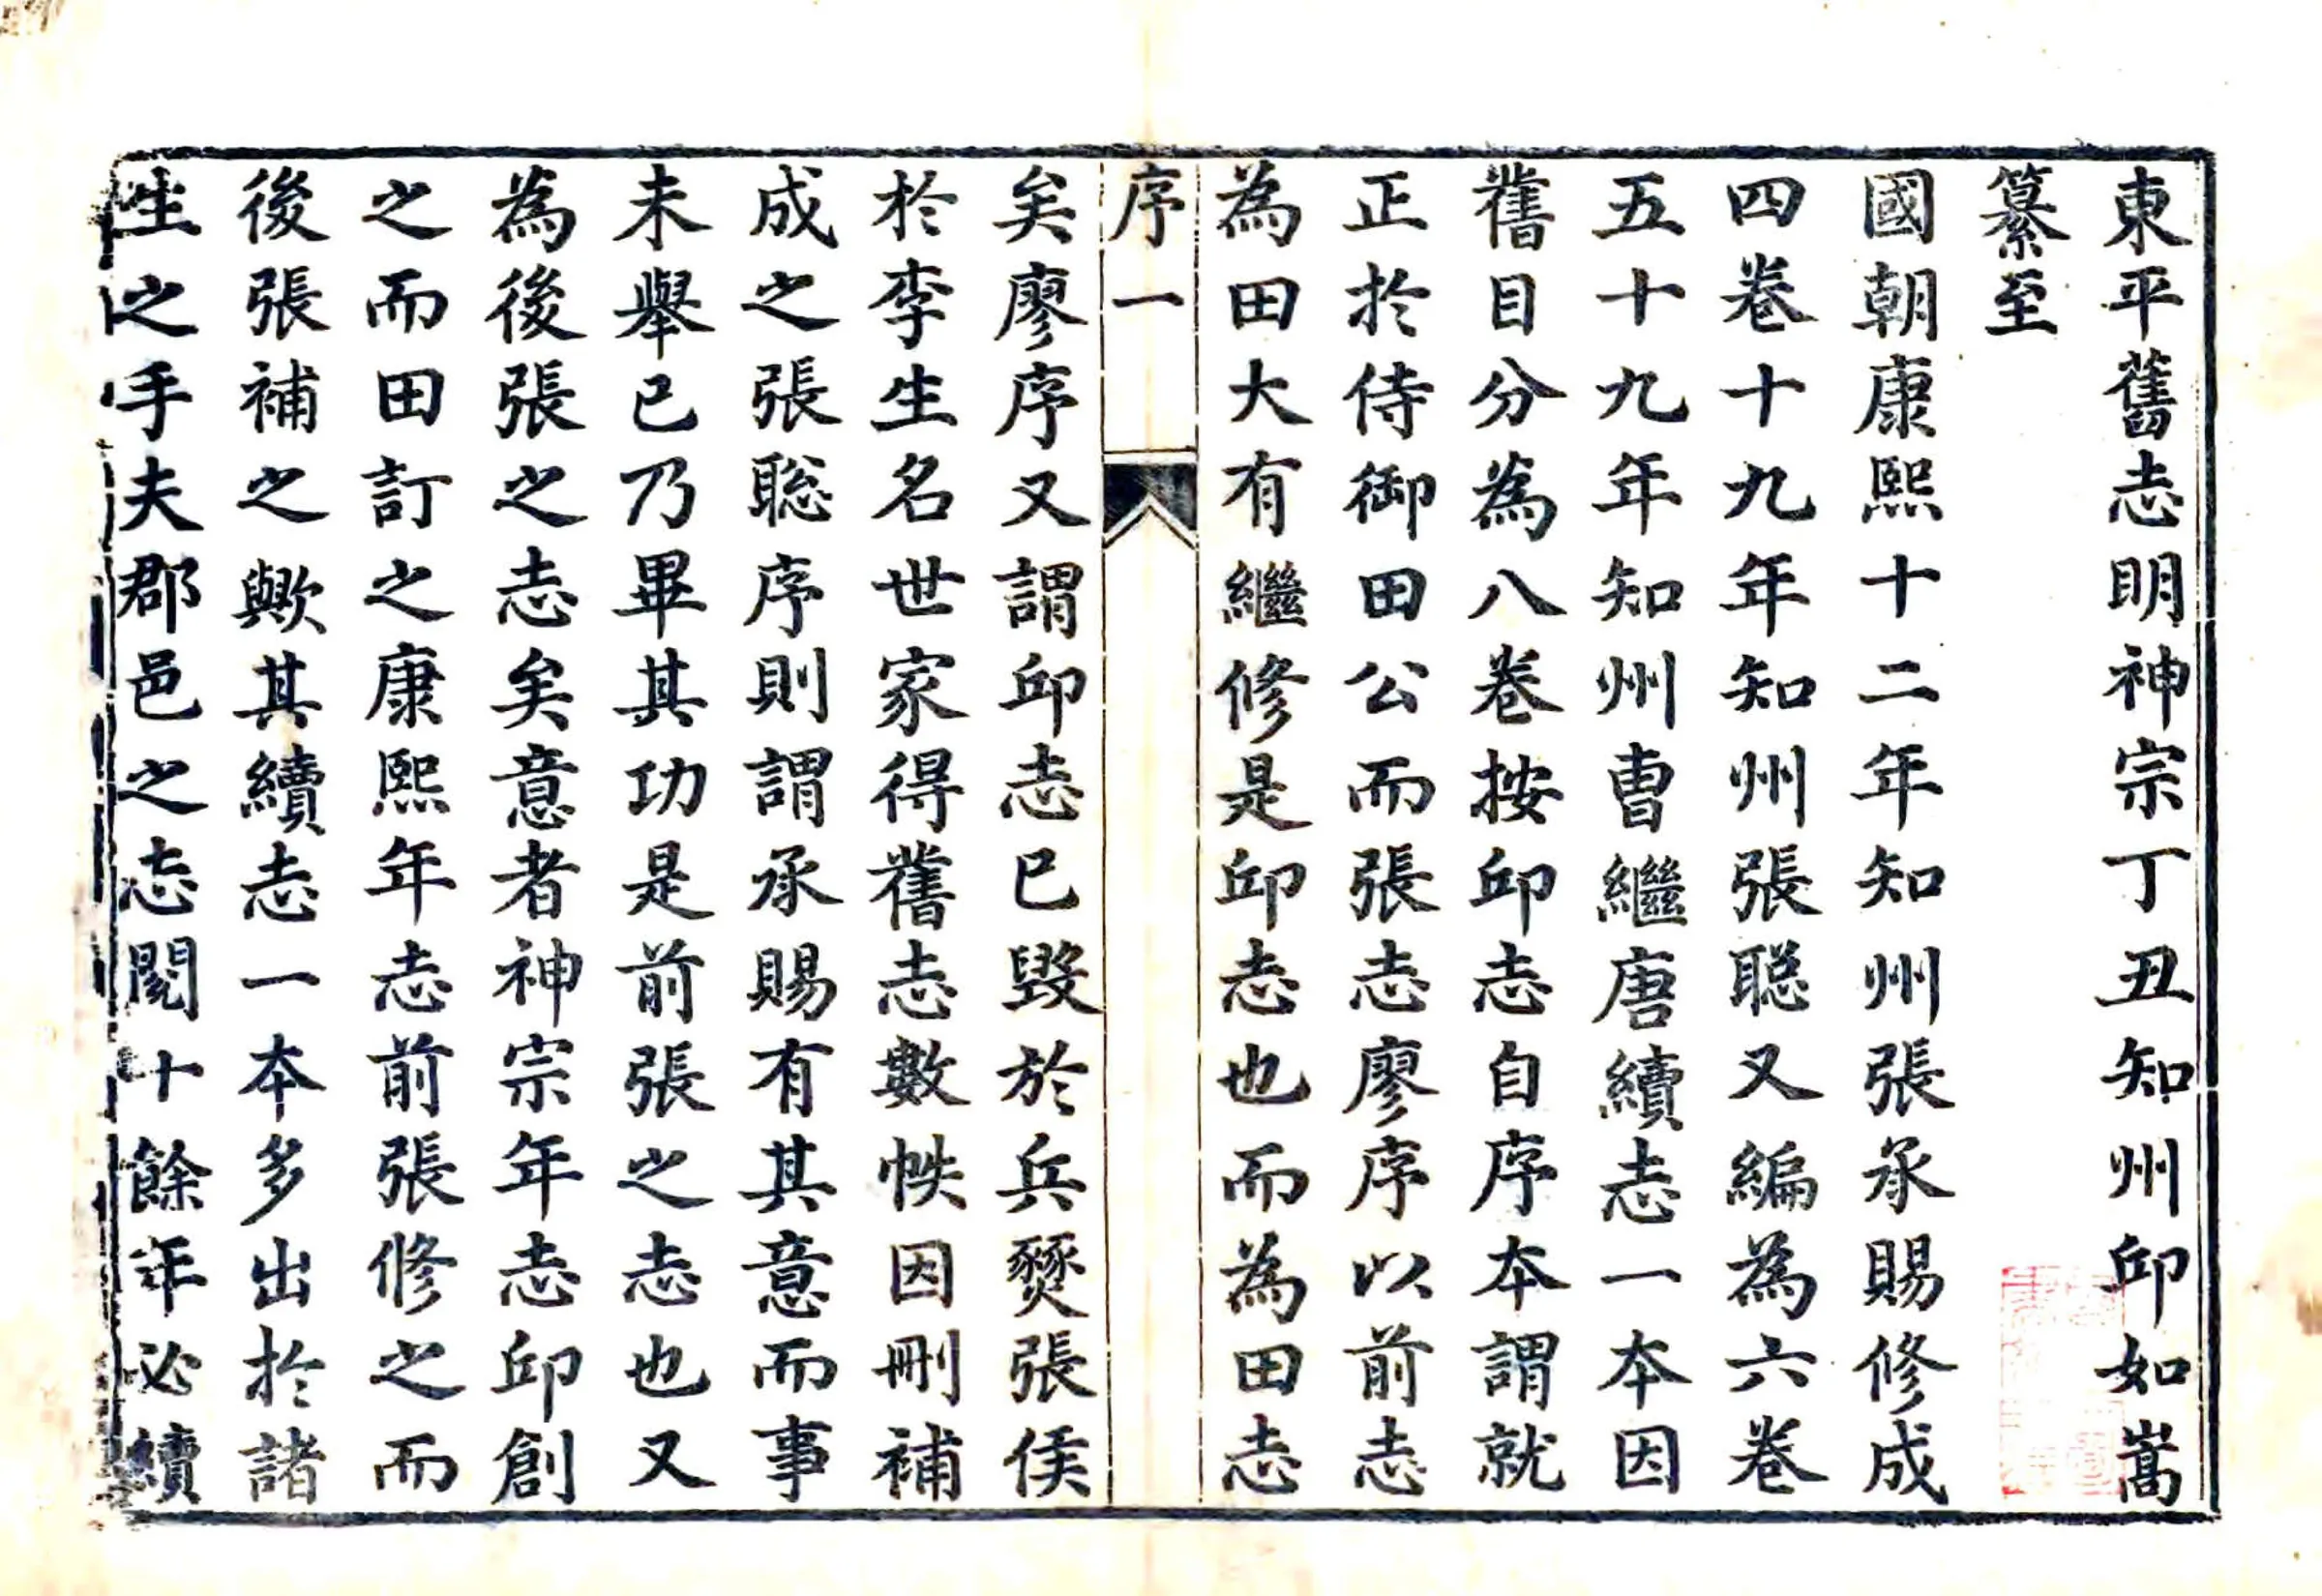 東平舊志明神宗丁丑知州邱如嵩
纂至
國朝康熙十二年知州張承賜修成
四卷十九年知州張聰又編為六卷
五十九年知州曹繼唐續志一本因
舊目分為八卷按邱志自序本謂就
正於侍御田公而張志廖序以前志
為田大有繼修是邱志也而為田志
序一
矣廖序又謂邱志已毀於兵燹張侯
於李生名世家得舊志數帙因刪補
成之張聡序則謂承賜有其意而事
未舉已乃畢其功是前張之志也又
為後張之志矣意者神宗年志邱創
之而田訂之康熙年志前張修之而
後張補之歟其續志一本多出於諸
生之手夫郡邑之志閱十餘年必續